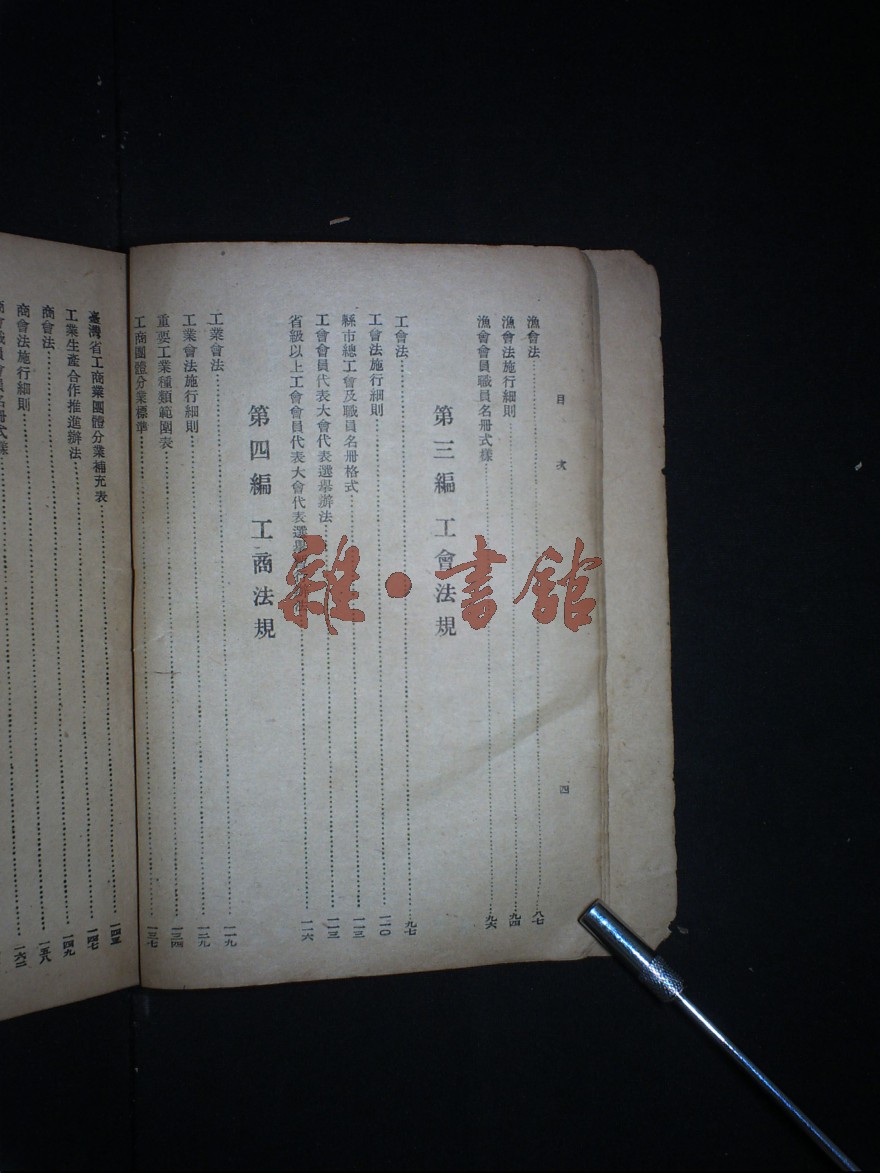 目次
四
漁會法 八七
漁會法施行細則 九四
漁會會員職員名册式樣 九六
第三編 工會法規
工會法 九七
工會法施行細則 一一〇
縣市總工會及職員名册格式 一一三
工會會員代表大會代表選舉辦法 一一三
省級以上工會會員代表大會代表選舉 一一六
第四編 工商法規
工業會法 一一九
工業會法施行細則 一二九
重要工業種類範圍表 一三四
工商團體分業標準 一三七
臺灣省工商業團體分業補充表 一四五
工業生產合作推進辦法 一四七
商會法 一四九
商會法施行細則 一五八
一六二
雜·書館